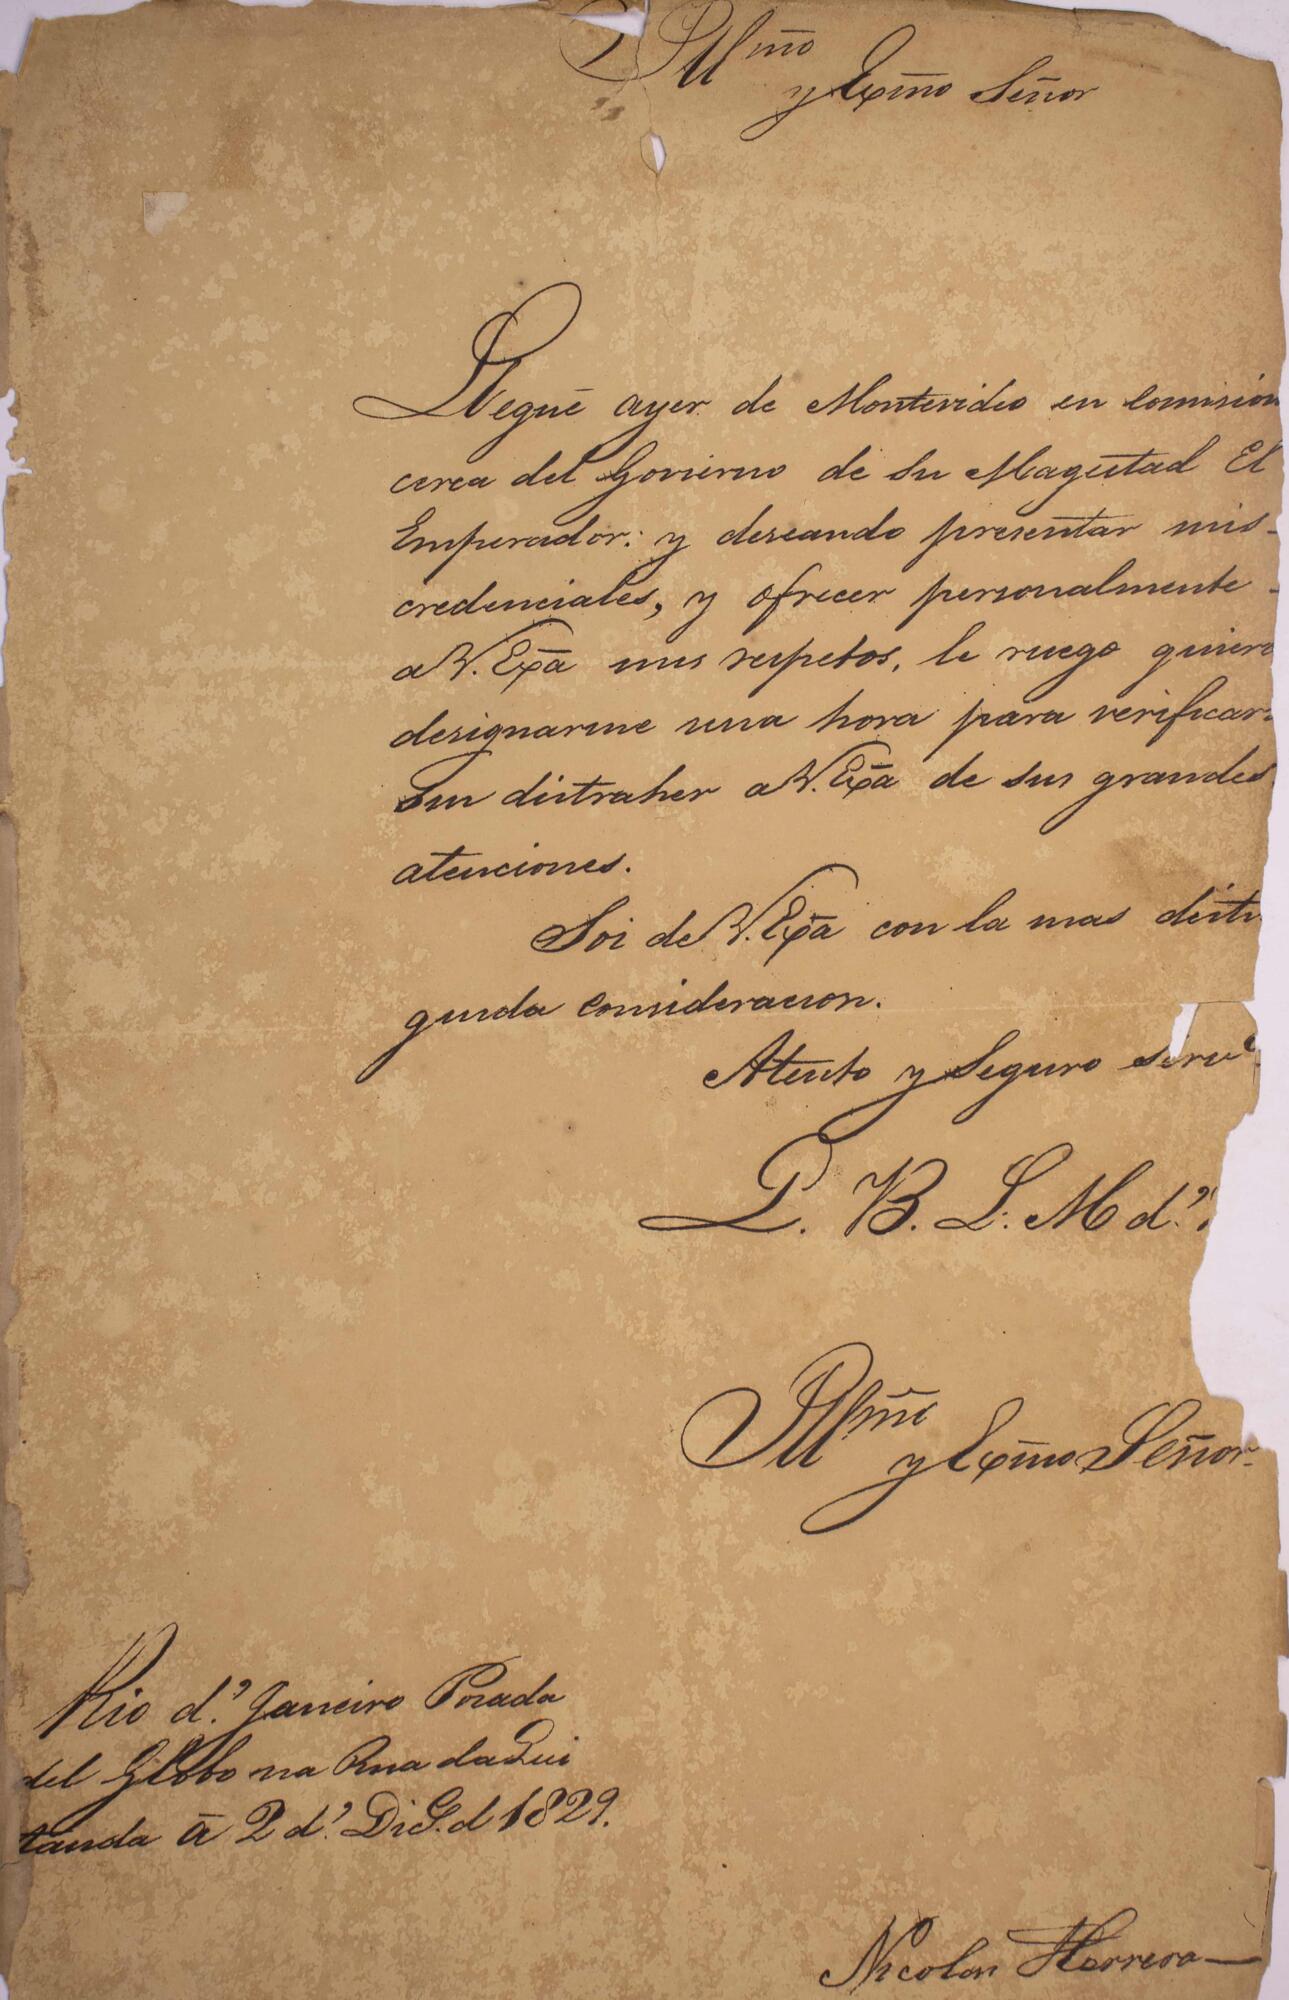 Yllmo
y Exmo Señor
Llegué ayer de Montevideo en comision
cerca del Govierno de su Magestad El
Emperador: y deseando presentar mis
credenciales, y ofrecer personalmente
a V. Exa mis respetos, le ruego quiera
designarme una hora para verificar
sin distraher a V. Exa de sus grandes
atenciones.
Soi de V. Exa con la mas distin
guida consideracion.
Atento y Seguro serv
L. B. L. M d.
Yllmo
y Exmo Señor
Rio d.e Janeiro Posada
del Globo na Rua da Qui
tanda á 2 d.e 1829.
Nicolas Herrera